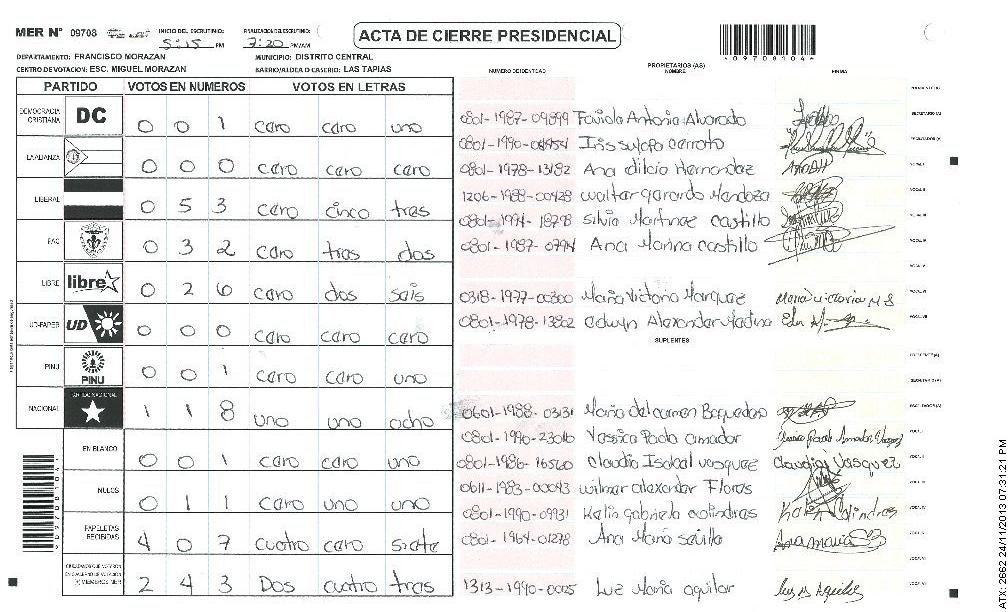 MER N° 09708 INICIO DEL ESCRUTINIO: 5:15 PM FINALIZACION DEL ESCRUTINIO: 7:20 PM/AM ACTA DE CIERRE PRESIDENCIAL
DEPARTAMENTO: FRANCISCO MORAZAN MUNICIPIO: DISTRITO CENTRAL
CENTRO DE VOTACION: ESC. MIGUEL MORAZAN BARRIO/ALDEA O CASERIO: LAS TAPIAS
09708104
PARTIDO VOTOS EN NUMEROS VOTOS EN LETRAS
NUMERO DE IDENTIDAD PROPIETARIOS (AS) NOMBRE FIRMA
DEMOCRACIA CRISTIANA DC 0 0 1 cero cero uno
LA ALIANZA 0 0 0 cero cero cero
LIBERAL 0 5 3 cero cinco tres
PAC 0 3 2 cero tres dos
LIBRE libre 0 2 6 cero dos seis
UD-FAPER UD 0 0 0 cero cero cero
PINU PINU 0 0 1 cero cero uno
NACIONAL PARTIDO NACIONAL 1 1 8 uno uno ocho
EN BLANCO 0 0 1 cero cero uno
NULOS 0 1 1 cero uno uno
PAPELETAS RECIBIDAS 4 0 7 cuatro cero siete
CIUDADANOS QUE VOTARON 2 4 3 Dos cuatro tres
0801-1987-09899 Faviola Antonia Alvarado
0801-1990-04454 Iris sulopa cerrato
0801-1978-13182 Ana dilcia Hernandez
1206-1988-00428 Walter gerardo Mendoza
0801-1994-18798 Silvia Martinez castillo
0801-1987-0794 Ana Marina castillo
0318-1977-00300 Maria Victoria Marquez
0801-1978-13802 edwyn Alexander Medina
SUPLENTES
0601-1988-03131 Maria del carmen Baquedano
0801-1990-23016 Yessica Paola amador
0801-1986-16560 claudia Isabel vasquez Claudia Vasquez
0611-1983-00093 wilmer alexander Flores
0801-1990-09931 Katin gabriela colindres
0801-1964-01278 Ana Maria sevilla
1313-1990-0005 Luz Maria aguilar
ATX 2662 24/11/2013 07:31:21 PM